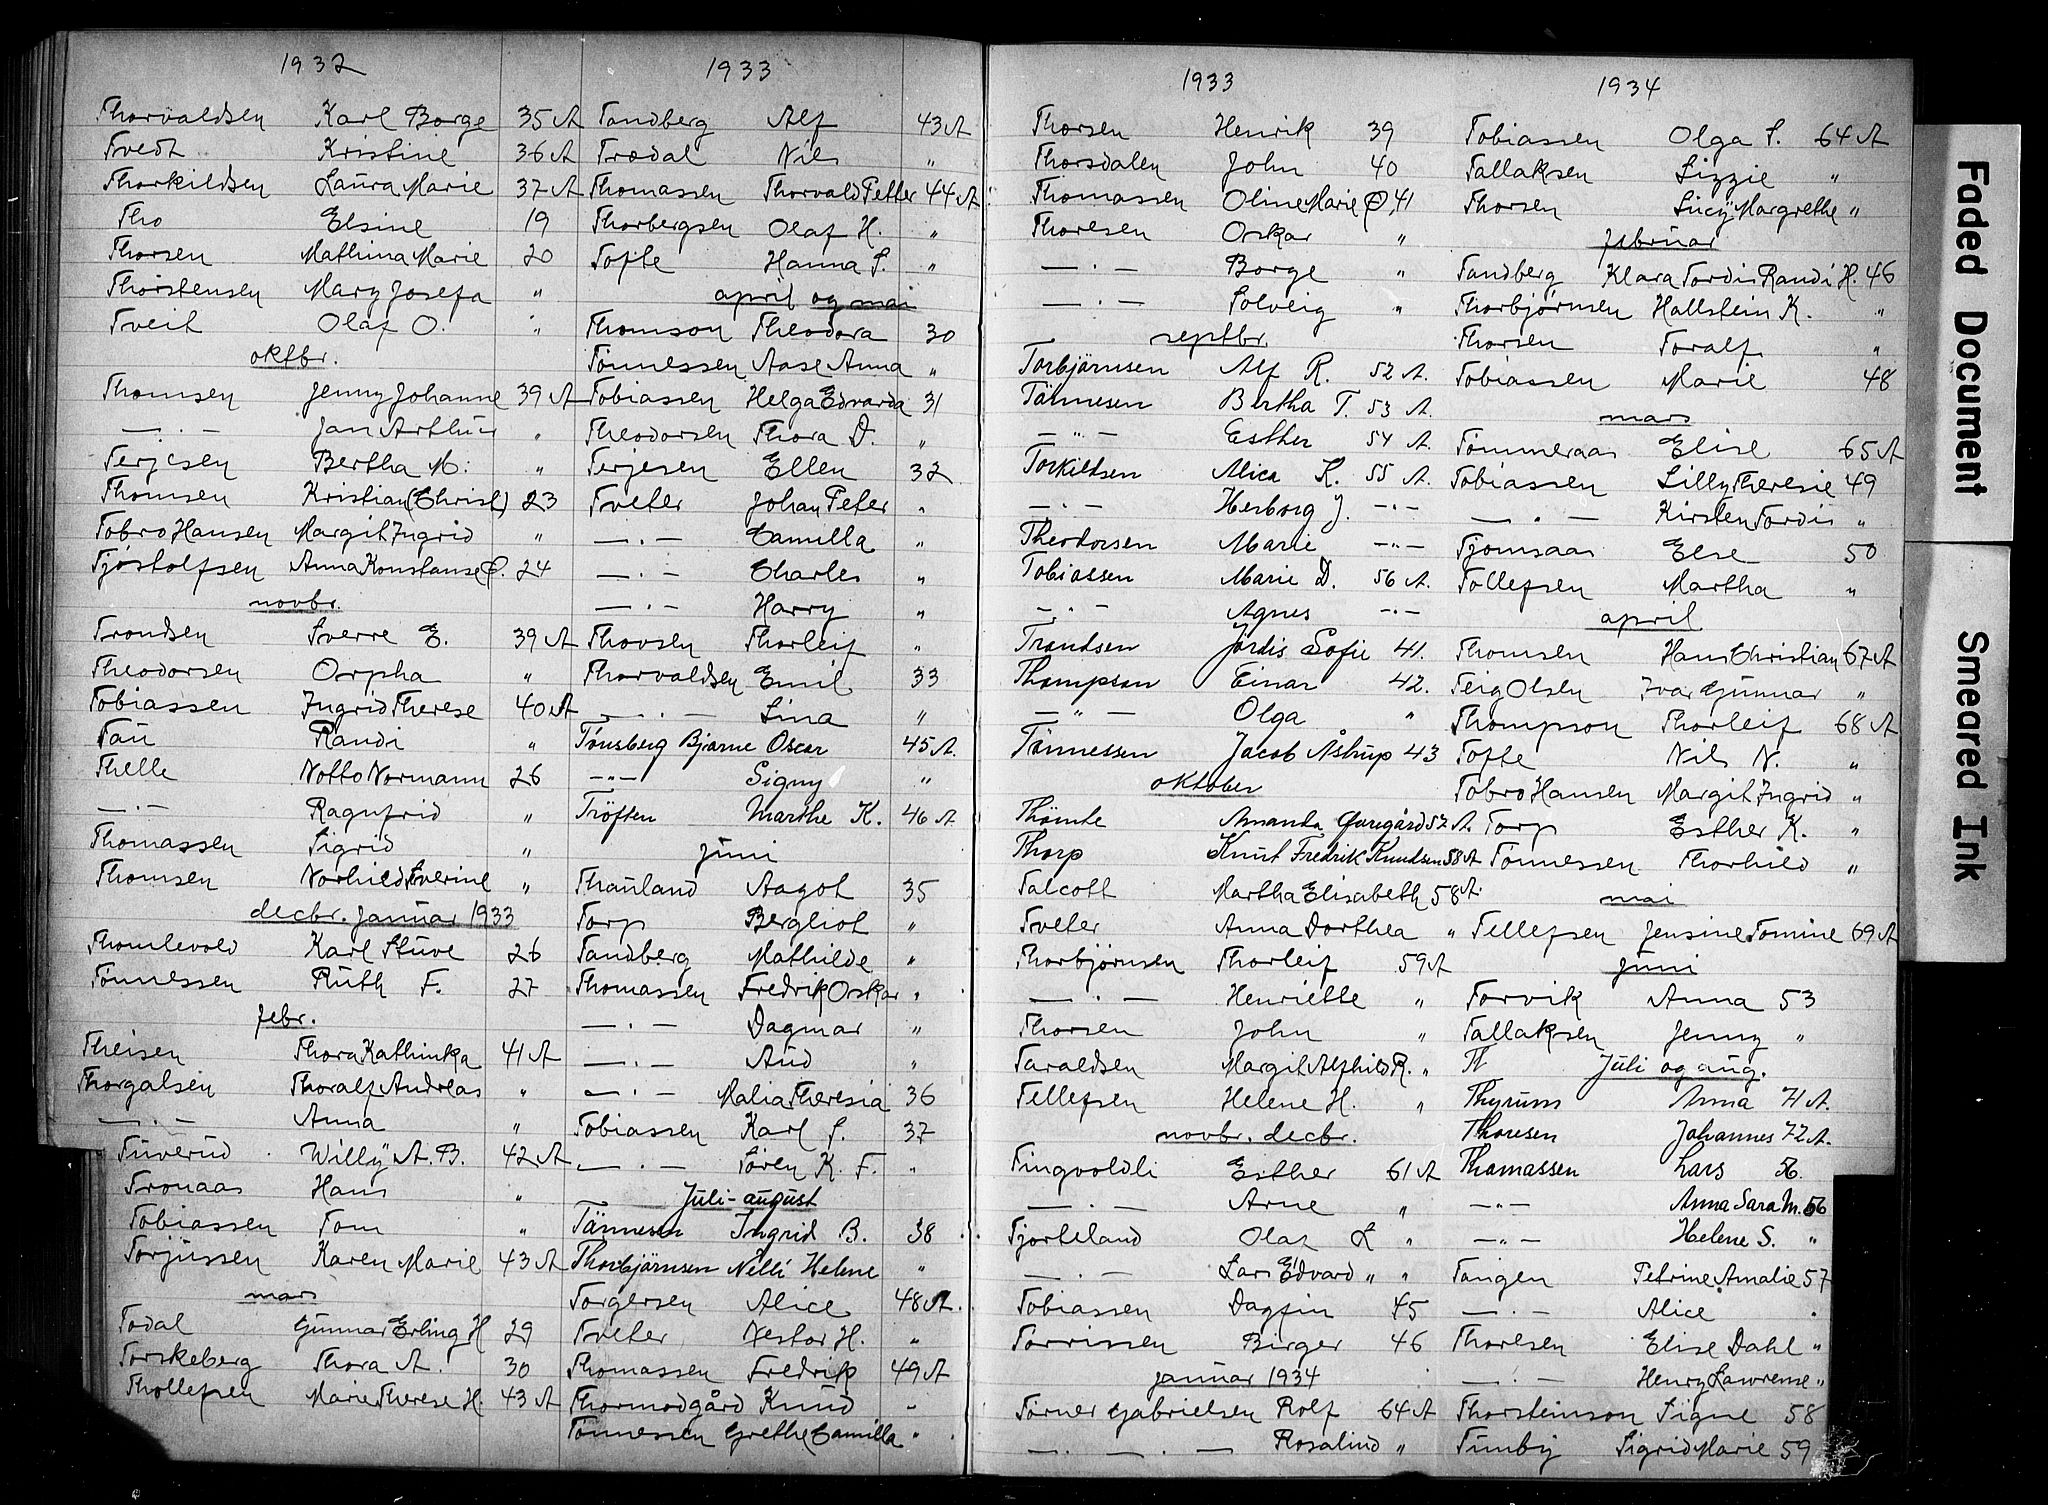 1932
Thorvaldsen Karl Borge 35 A
Tvedt Kristine 36 A
Thorkildsen Laura Marie 37 A
Tho Elsine 19
Thorsen Mathina Marie 20
Thorstensen Mary Josefa "
Tveit Olaf O. "
oktbr.
Thomsen Jenny Johanne 39 A
—.— Jan Arthur "
Terjesen Bertha M. "
Thomsen Kristian (Christ) 23
Tobro Hansen Margit Ingrid "
Tjøstolfsen Anna Konstanse P. 24
novbr.
Trondsen Sverre E. 39 A
Theodorsen Orpha "
Tobiassen Ingrid Therese 40 A
Tau Randi "
Thelle Notto Normann 26
—.— Ragnfrid "
Thomassen Sigrid "
Thomsen Norhild Severine "
decbr. januar 1933
Thomlevold Karl Stuve 26
Tønnessen Ruth F. 27
febr.
Theisen Thora Kathinka 41 A
Thorgalsen Thoralf Andreas "
—.— Anna "
Tuverud Willy A. B. 42 A
Tronaas Hans "
Tobiassen Tom "
Torjussen Karen Marie 43 A
mars
Todal Gunnar Erling H 29
Torskeberg Thora A. 30
Thollefsen Marie Therese H. 43 A
1933
Tandberg Alf 43 A
Trædal Nils "
Thomassen Thorvald Petter 44 A
Thorbergsen Olaf H. "
Tofte Hanna S. "
april og mai
Thomson Theodora 30
Tønnessen Aase Anna "
Tobiassen Helga Edvarda 31
Theodorsen Thora D. "
Terjesen Ellen 32
Tveter Johan Peter "
—.— Camilla "
—.— Charles "
—.— Harry "
Thovsen Thorleif "
Thorvaldsen Emil 33
—.— Lina "
Tønsberg Bjarne Oscar 45 A.
—"— Signy "
Trøften Marthe K. 46 A.
juni
Thauland Aagot 35
Torp Bergliot "
Tandberg Mathilde "
Thomassen Fredrik Oskar "
—.— Dagmar "
—.— Aud "
—.— Malia Theresia 36
Tobiassen Karl S. 37
—.— Søren K. F. "
Juli - august
Tännesen Ingrid B. 38
Thorbjørnsen Nelli Helene "
Torgersen Alice 48 A.
Tveter Nestor H. "
Thomassen Fredrik 49 A
Thormodgård Knud "
Tønnessen Grethe Camilla "
1933
Thorsen Henrik 39
Thorsdalen John 40
Thomassen Oline Marie P. 41
Thoresen Oskar "
—.— Borge "
—.— Solveig "
septbr.
Torbjørnsen Alf R. 52 A.
Tännesen Bertha T. 53 A.
—"— Esther 54 A.
Torkildsen Alica K. 55 A.
—.— Herborg J. —.—
Theodorsen Marie —"—
Tobiassen Marie D. 56 A.
—.— Agnes —.—
Trondsen Jordis Sofie 41.
Thompson Einar 42.
—"— Olga "
Tönnessen Jacob Åstrup 43
oktober
Thømte Amanda Øvregård 57 A.
Thorp Knut Fredrik Knudsen 58 A
Talcott Martha Elisabeth 58 A.
Tveter Anna Dorthea "
Thorbjørnsen Thorleif 59 A
—.— Henriette "
Thorsen John "
Taraldsen Margit Alfhild R. "
Tellefsen Helene H. "
novbr. decbr.
Tingvoldli Esther 61 A
—.— Arne "
Tjorteland Olaf L "
—.— Lars Edvard " "
Tobiassen Dagfin 45
Torrissen Birger 46
januar 1934
Tørner Gabrielsen Rolf 64 A
—.—.— Rosalind "
1934
Tobiassen Olga S. 64 A
Tallaksen Lizzie "
Thorsen Lucy Margrethe "
februar
Tandberg Klara Tordis Randi H. 46
Thorbjørnsen Hallstein K. "
Thorsen Toralf "
Tobiassen Marie 48
mars
Tømmeraas Elise 65 A
Tobiassen Lilly Theresie 49
—.— Kirsten Tordis "
Tjomsaas Else 50
Tollefsen Martha "
april
Thomsen Hans Christian 67 A
Teig Olsen Ivar Gunnar "
Thompson Thorleif 68 A
Tofte Nils N. "
Tobro Hansen Margit Ingrid "
Torp Esther K. "
Tønnessen Thorhild "
mai
Tellefsen Jensine Tomine 69 A
juni
Torvik Anna 53
Tallaksen Jenny "
Th Juli og aug.
Thyrum Anna 71 A.
Thoresen Johannes 72 A.
Thomassen Lars 56
—"— Anna Sara M. 56
—"— Helene S. "
Tangen Petrine Amalie 57
—.— Alice "
Thoresen Elise Dahl "
—.— Henry Lawrense "
Thorsteinson Signe 58
Tunby Sigrid Marie 59
Faded Document
Smeared Ink